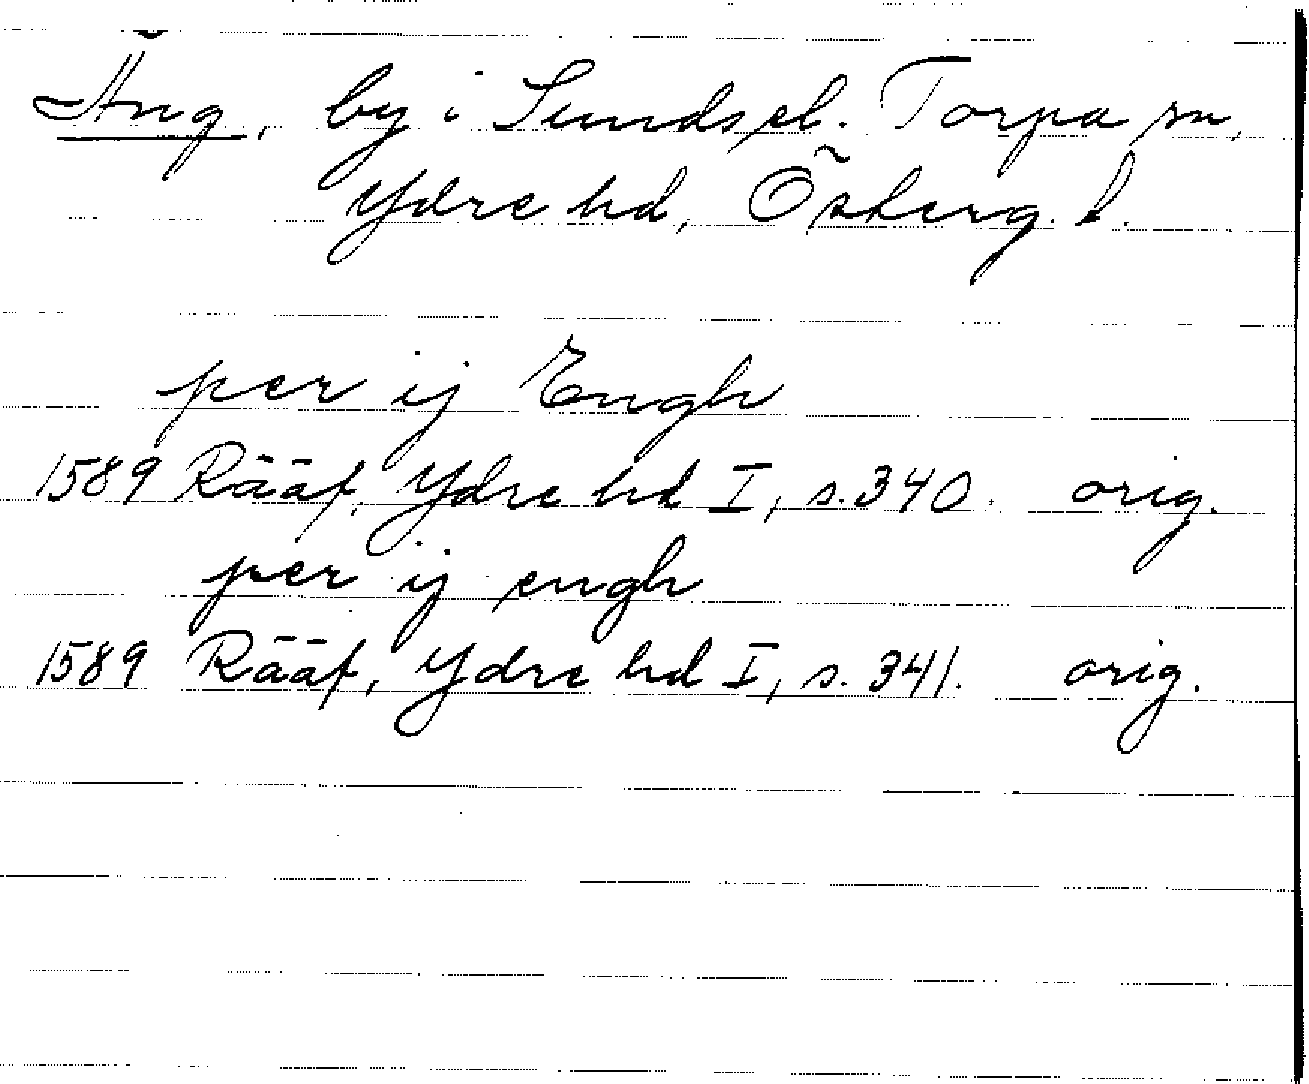 Äng, by i Sunds el. Torpa sn,
Ydre hd, Österg. l.
per ij Engh
1589 Rääf, Ydre hd I, s. 340. orig.
per ij engh
1589 Rääf, Ydre hd I, s. 341. orig.